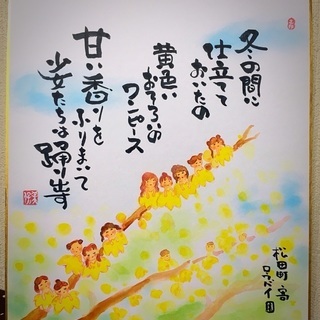 冬の間に
仕立てて
おいたの
黄色い
おそろいの
ワンピース
甘い香りを
ふりまいて
少女たちは踊り出す
松田町寄
ロウバイ園